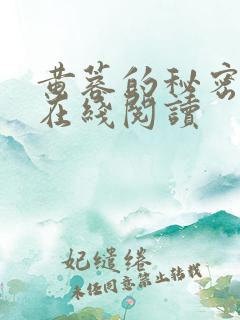 黄蓉的秘密
在綫閱讀
妃缱绻
未经同意禁止转载